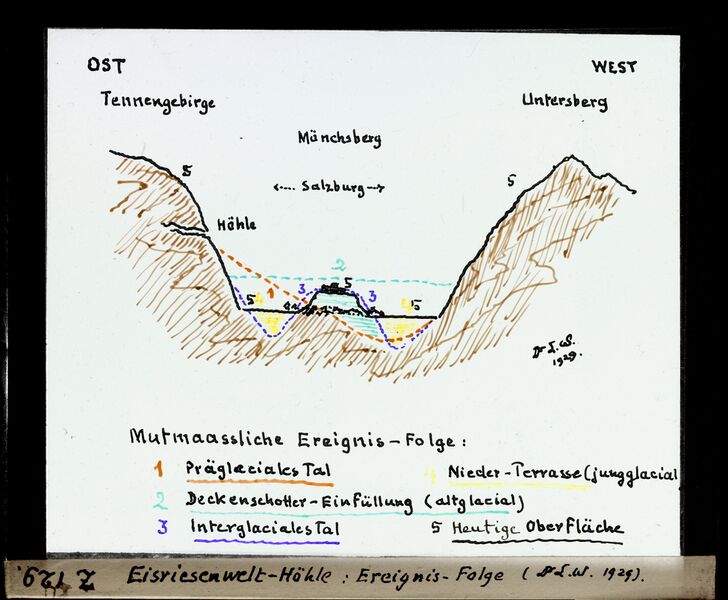 OST
WEST
Tennengebirge
Untersberg
Mönchsberg
5
5
<---- Salzburg -->
Höhle
2
1 3 5 3
5 4 4 5
Dr L.W.
1929.
Mutmaassliche Ereignis-Folge:
1 Präglaciales Tal
4 Nieder-Terrasse (jungglacial
2 Deckenschotter-Einfüllung (altglacial)
3 Interglaciales Tal
5 Heutige Oberfläche
Z 129. Eisriesenwelt-Höhle: Ereignis-Folge (Dr L.W. 1929).